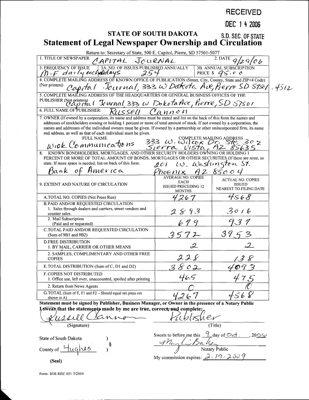 RECEIVED
DEC 14 2006
S.D. SEC. OF STATE
STATE OF SOUTH DAKOTA
Statement of Legal Newspaper Ownership and Circulation
Return to: Secretary of State, 500 E. Capitol, Pierre, SD 57501-5077
1. TITLE OF NEWSPAPER CAPITAL JOURNAL 2. DATE 9/29/06
3. FREQUENCY OF ISSUE M-F daily 3A. NO. OF ISSUES PUBLISHED ANNUALLY 254 3B. ANNUAL SUBSCRIPTION PRICE $ 95.00
4. COMPLETE MAILING ADDRESS OF KNOWN OFFICE OF PUBLICATION (Street, City, County, State and ZIP+4 Code)
(Not printers) Capital Journal, 333 W Dakota Ave, Pierre, SD 57501-4512
5. COMPLETE MAILING ADDRESS OF THE HEADQUARTERS OR GENERAL BUSINESS OFFICES OF THE
PUBLISHER (Not printers) Capital Journal 333 W Dakota Ave, Pierre SD 57501
6. FULL NAME OF PUBLISHER: Russell Cannon
7. OWNER (If owned by a corporation, its name and address must be stated and
FULL NAME COMPLETE MAILING ADDRESS
Wick Communications 333 W. Wilcox Dr. Ste. 302
Sierra Vista, AZ 85635
8. KNOWN BONDHOLDERS, MORTGAGES, AND OTHER SECURITY HOLDERS OWNING OR HOLDING 1
PERCENT OR MORE OF TOTAL AMOUNT OF BONDS, MORTGAGES OR OTHER SECURITIES
Bank of America 201 W. Washington St.
Phoenix AZ 85004
9. EXTENT AND NATURE OF CIRCULATION
AVERAGE NO. COPIES EACH ISSUED PRECEDING 12 MONTHS
ACTUAL NO. COPIES ISSUED NEAREST TO FILING DATE
A. TOTAL NO. COPIES (Net Press Run) 4267 4568
B. PAID AND/OR REQUESTED CIRCULATION
1. Sales through dealers and carriers, street vendors and counter sales. 2893 3016
2. Mail Subscription (Paid and or requested) 679 937
C. TOTAL PAID AND/OR REQUESTED CIRCULATION
(Sum of 9B1 and 9B2) 3572 3953
D. FREE DISTRIBUTION
1. BY MAIL, CARRIER OR OTHER MEANS 2 2
2. SAMPLES, COMPLIMENTARY AND OTHER FREE COPIES 228 138
E. TOTAL DISTRIBUTION (Sum of C, D1 and D2) 3802 4093
F. COPIES NOT DISTRIBUTED
1. Office use, left over, unaccounted, spoiled after printing 465 475
2. Return from News Agents 0
G. TOTAL (Sum of E, F1 and F2 - Should equal net press run shown in A) 4267 4568
Statement must be signed by Publisher, Business Manager, or Owner in the presence of a Notary Public
I swear that the statements made by me are true, correct and complete:
Russell Cannon Publisher
(Signature) (Title)
State of South Dakota )
County of Hughes )
Sworn to before me this 9 day of Oct 2006
Notary Public
(Seal)
My commission expires: 2-19-2009